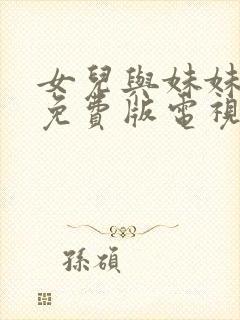 女兒與妹妹
免費版電視
孫碩